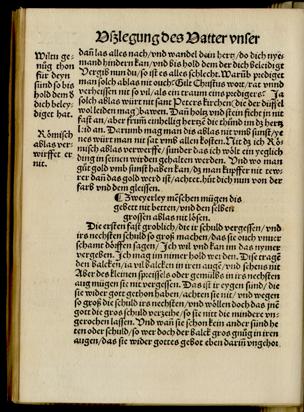 Vßlegung des Vatter vnser
Wiltu ge-
nůg thon
für deyn
sünd so bis
hold dem dʒ
dich beley-
diget hat.
Römisch
ablas ver-
wirffet er
nit.
dañ las alles nach/vnd wandel dein hertʒ/do dich nye-
mand hindern kan/vnd bis hold dem der dich beleidigt
Vergib nun du/so ist es alles schlecht. Warūb prediget
man solch ablas nit ouch? Gilt Christus wort/rat vnd
verheissen nit so vil/als ein traum eins predigers? Ja
solch ablas würt nit sant Peters kirchen/die der düffel
wol leiden mag/bawen. Dañ holtʒ vnd stein ficht in nit
fast an/aber frum einhellig hertʒen die thůnd im dʒ hertʒ
leid an. Darumb mag man dis ablas nit vmb sunst/ye-
nes würt man nit sat vmb allen kosten. Nit dʒ ich Rö-
misch ablas verwerffe/sunder das ich wölt ein yeglich
ding in seinen wirden gehalten werden. Vnd wo man
gůt gold vmb sunst haben kan/dʒ man kupffer nit tew-
rer dañ das gold werd ist/achtet. hüt dich nun von der
farb vnd dem gleissen.
Zweyerley mēschen mügen dis
gebett nit betten/vnd den selben
grossen ablas nit lösen.
Die ersten fast groblich/die ir schuld vergessen/vnd
irs nechsten schuld so groß machen/das sie ouch vnuer
schamt döffen sagen/Ich wil vnd kan im das nymer
vergeben. Ich mag im nimer hold werden. Dise tragē
den balckē/ia vil balcken in iren augē/vnd sehens nit
Aber des kleinen spreissels oder gemülbs in irs nechsten
aug mügen sie nit vergessen. Das ist ir eygen sünd/die
sie wider got gethon haben/achten sie nit/vnd wegen
so groß die schuld irs nechsten/vnd wöllen doch das jnē
got die gros schuld verzeihe/so sie nit die mindere vn-
gerochen lassen. Vnd wañ sie schon kein ander sünd he
ten oder schuld/so wer doch der balck gnůg in iren
augen/das sie wider gottes gebot eben darin vngehor-